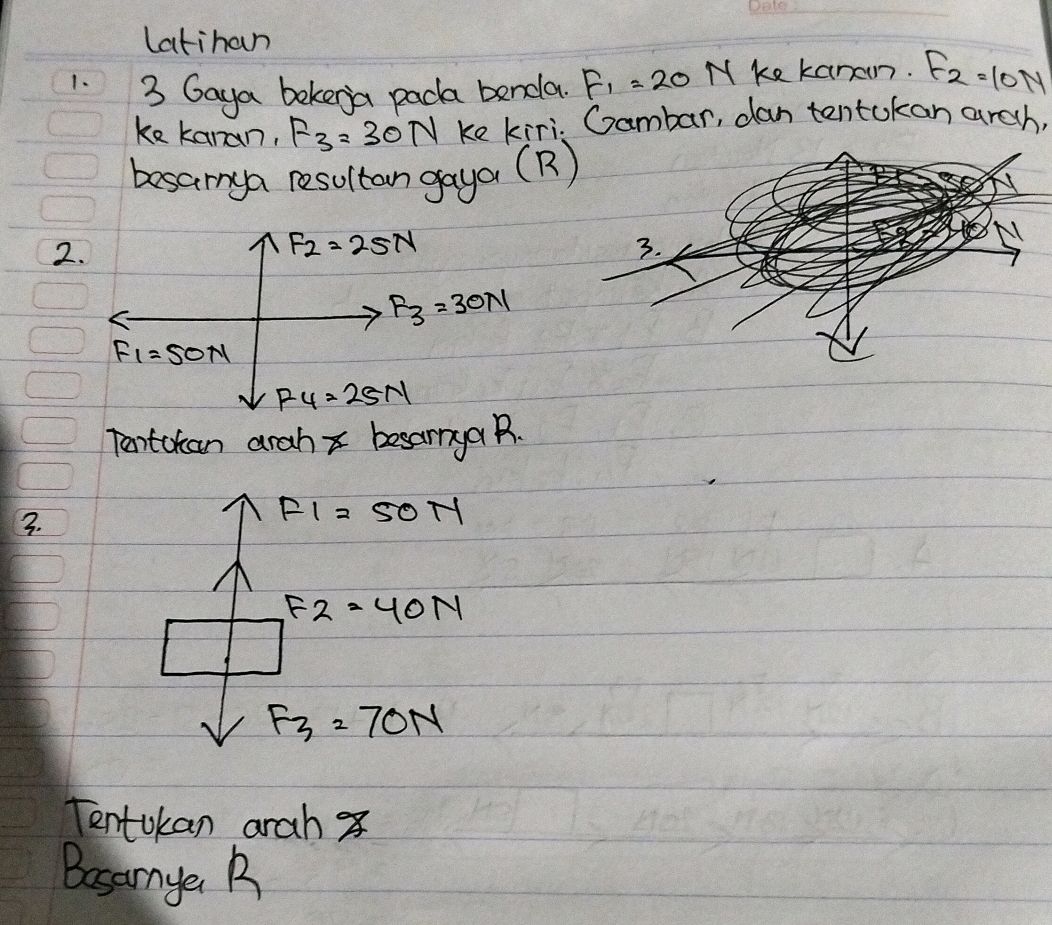 Date
Latihan
1. 3 Gaya bekerja pada benda. F1 = 20 N ke kanan. F2 = 10N
ke kanan, F3 = 30N ke kiri. Gambar, dan tentukan arah,
besarnya resultan gaya (R)
2. F2 = 25N
3.
F3 = 30N
F1 = 50N
F4 = 25N
Tentukan arah & besarnya R.
3. F1 = 50N
F2 = 40N
F3 = 70N
Tentukan arah &
Besarnya R